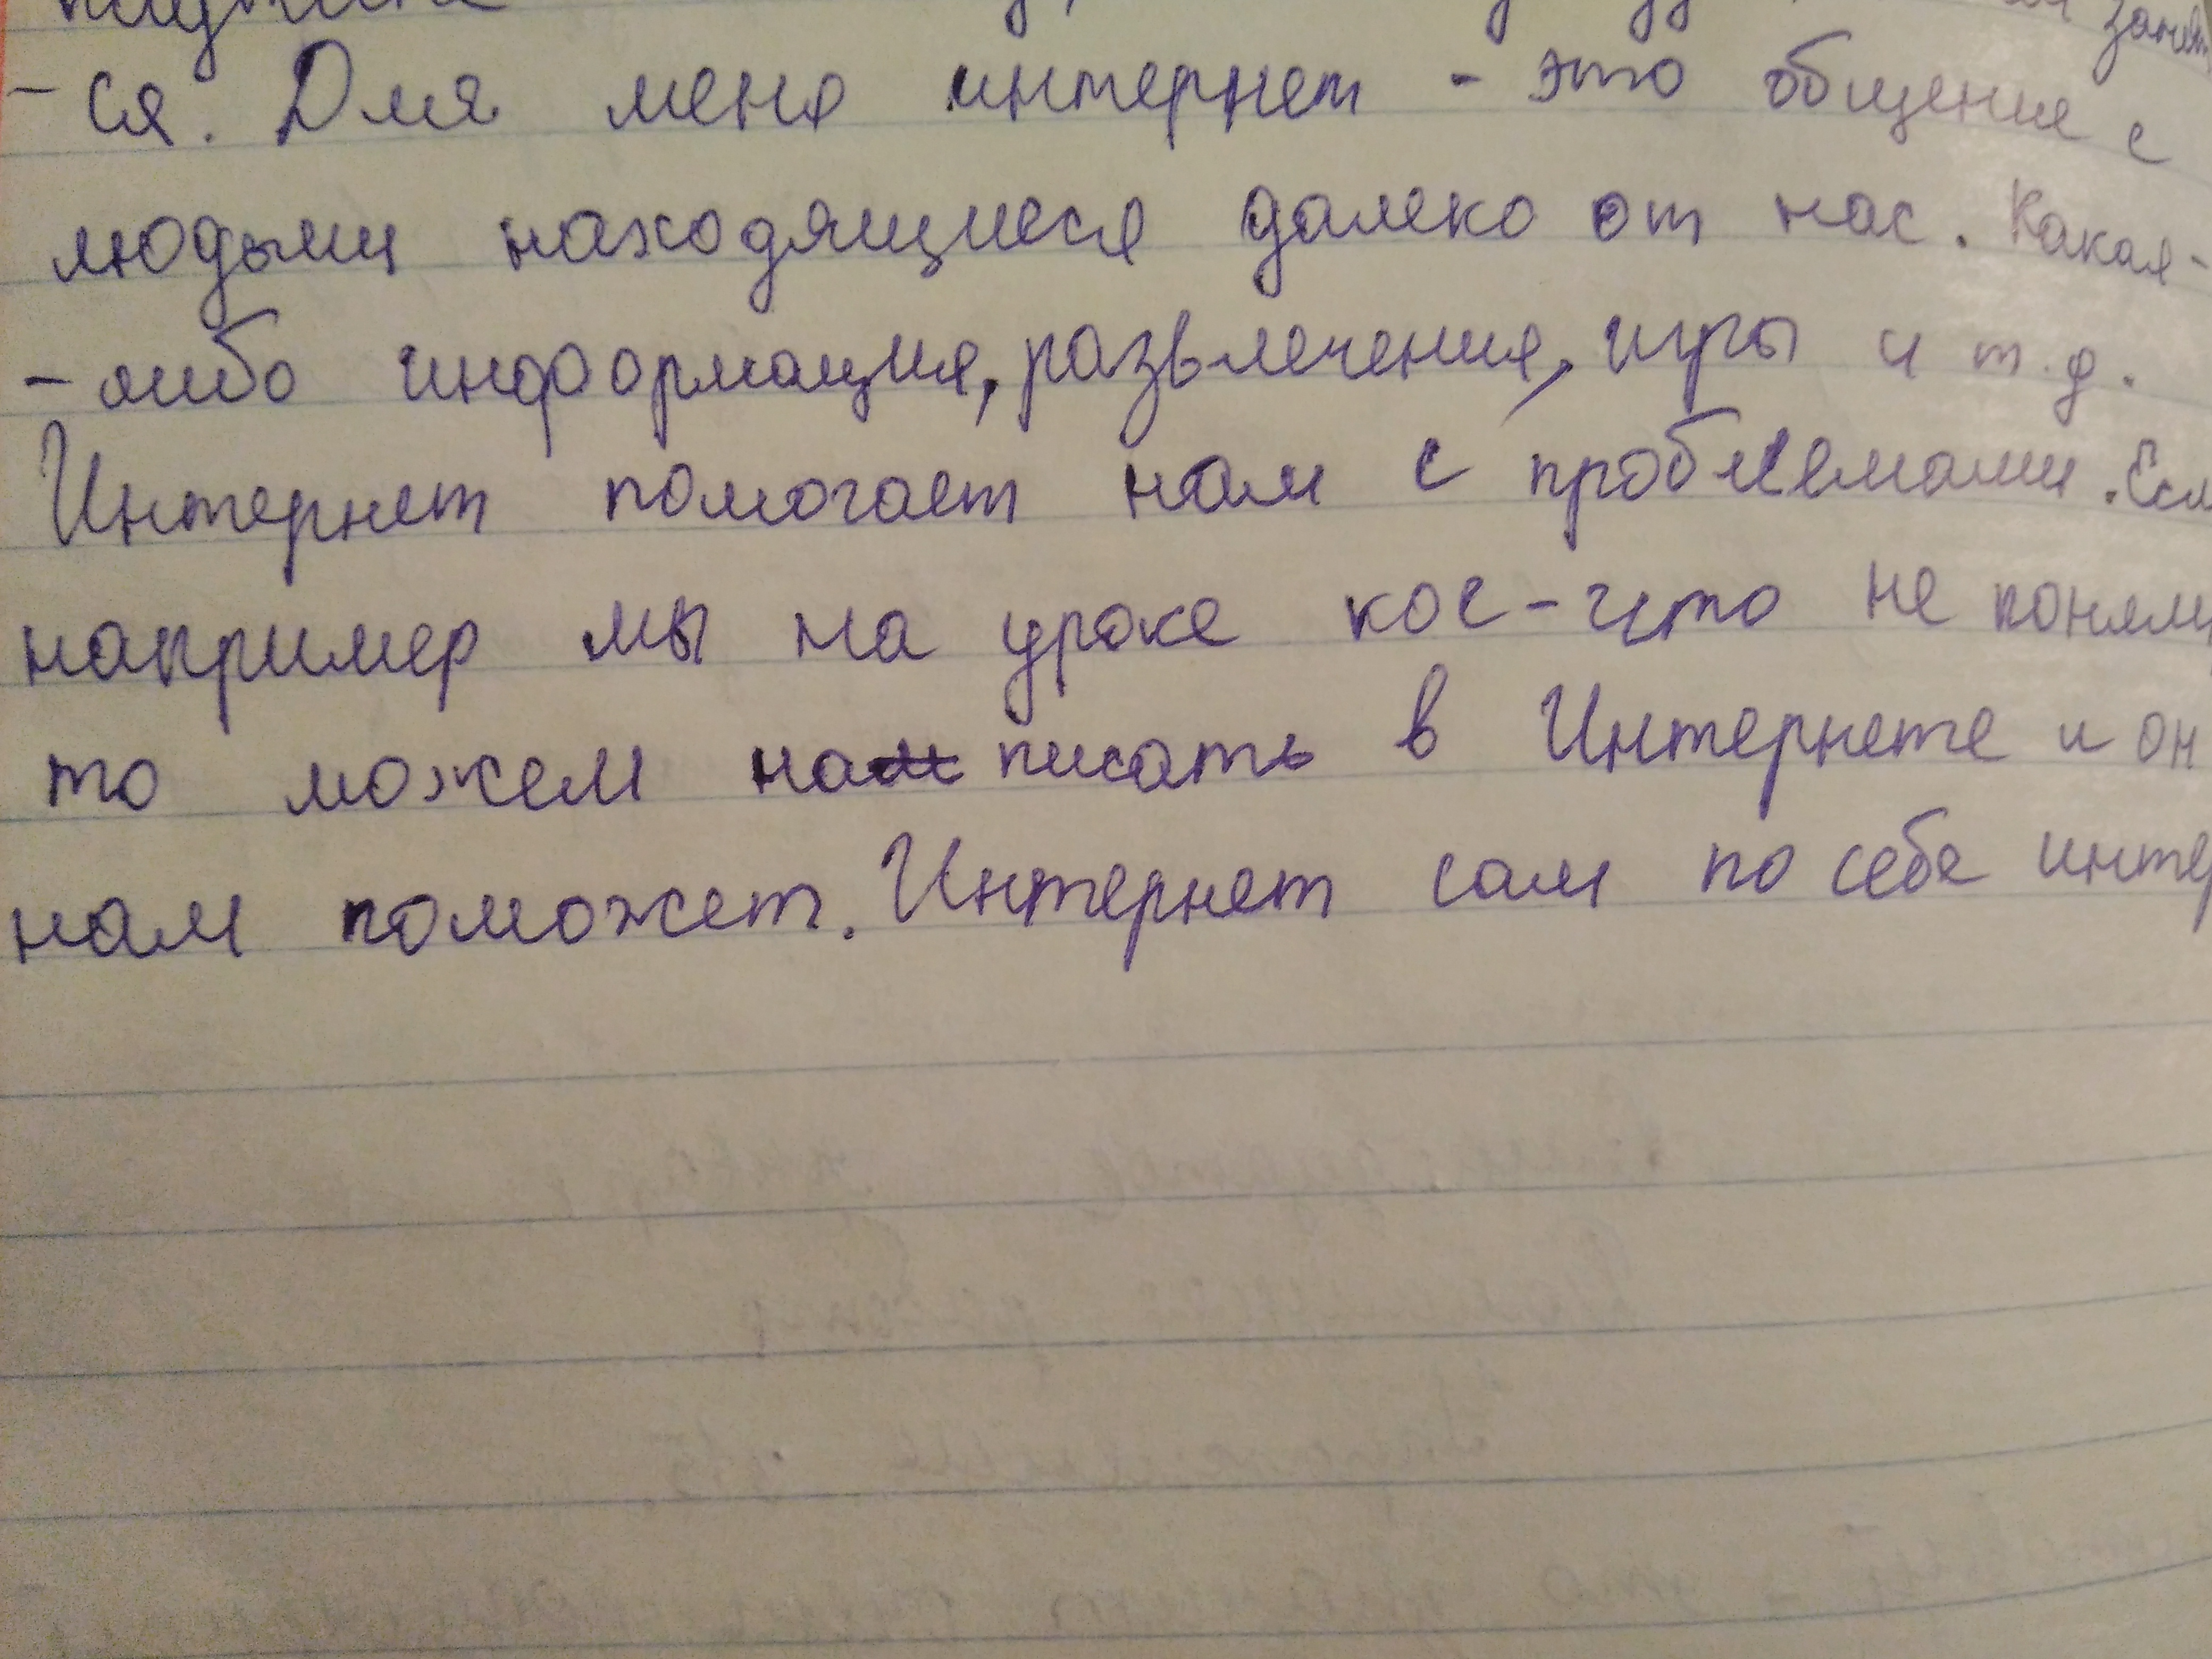 -ся. Для меня интернет - это общение с
людьми находящиеся далеко от нас. Какая-
-либо информация, развлечения, игры и т.д.
Интернет помогает нам с проблемами. Если
например мы на уроке кое-что не поняли,
то можем написать в Интернете и он
нам поможет. Интернет сам по себе интер